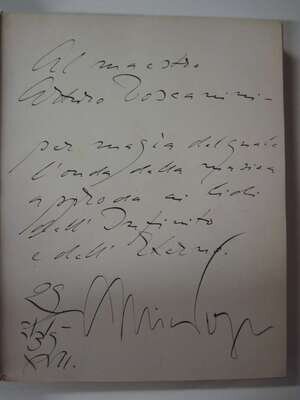 Al maestro
Arturo Toscanini -
per magia del quale
l'onda della musica
approda ai lidi
dell'Infinito
e dell'Eterno.
29
XVII.